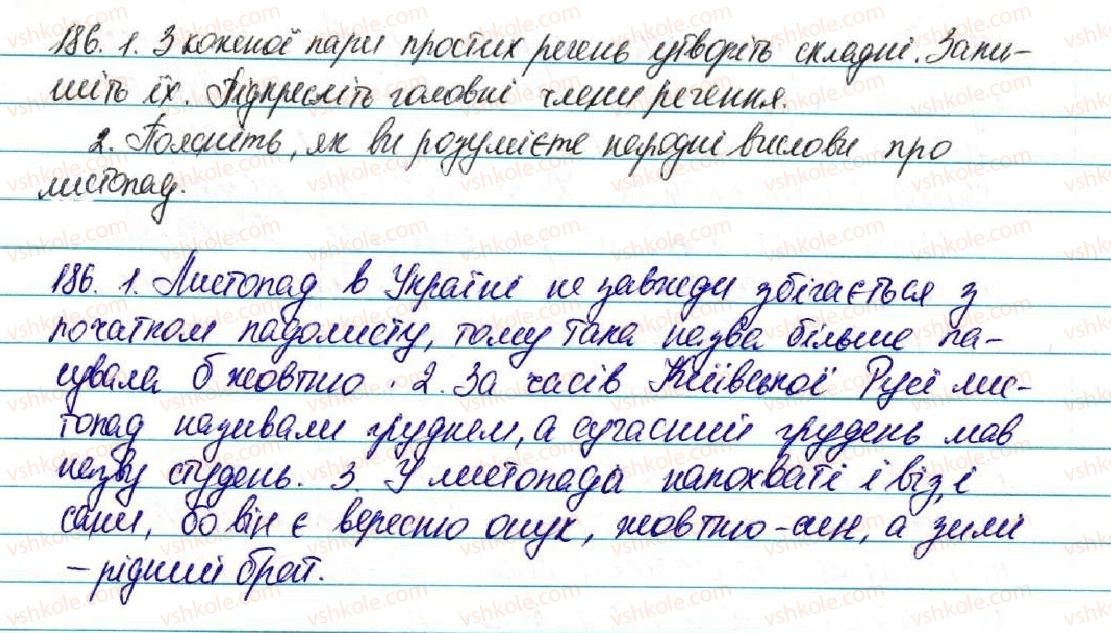 186. 1. З кожної пари простих речень утворіть складні. Запи-
шіть їх. Підкресліть головні члени речення.
2. Поясніть, як ви розумієте народні вислови про
листопад.
186. 1. Листопад в Україні не завжди збігається з
початком падолисту, тому така назва більше па-
сувала б жовтню. 2. За часів Київської Русі лис-
топад називали груднем, а сучасний грудень мав
назву студень. 3 У листопада напохваті і віз, і
сани, бо він є вересню онук, жовтню-син, а зимі
- рідний брат.